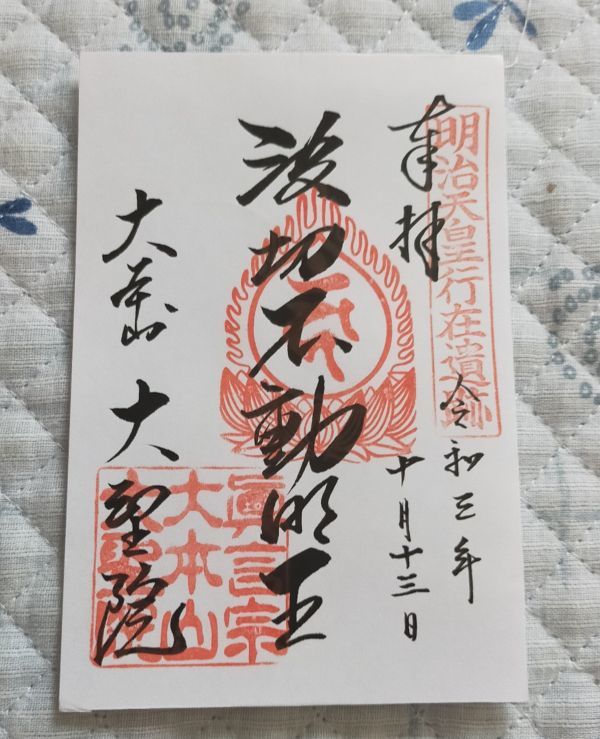 明治天皇行在遺跡
奉拝
令和三年
十月十三日
波切不動明王
大本山 大聖院
眞言宗
大本山
大聖院